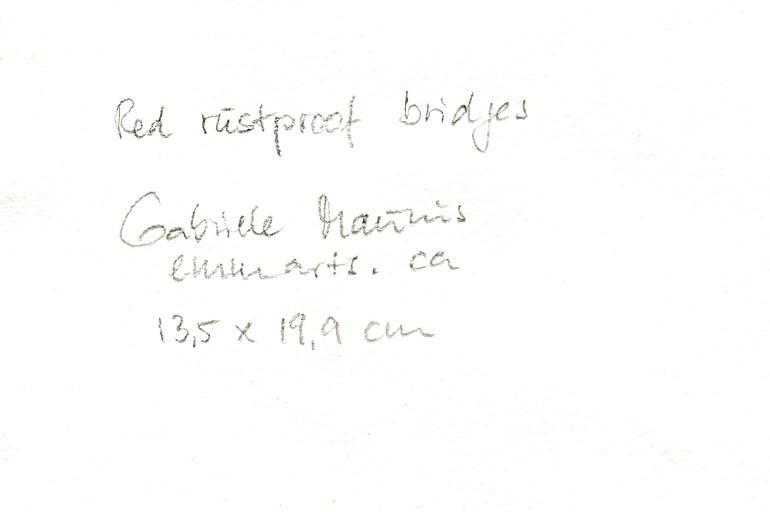 Red rustproof bridges
Gabriele
emmarts. ca
13,5 x 19,9 cm